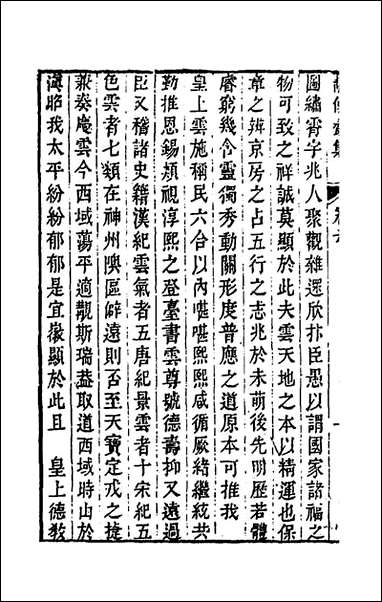 圖繡霄字兆人聚觀雜遝欣抃臣愚以謂國家諸福之
物可致之祥誠莫顯於此夫雲天地之本以精運也保
章之辨京房之占五行之志兆於未萌後先明歷若體
睿窮幾含靈獨秀動關形度普應之道原本可推我
皇上雲施稱民六合以內喁喁熙熙咸循厥緒繼統共
勤推恩錫類視淳熙之登臺書雲尊號德壽抑又遠過
臣又稽諸史籍漢紀雲氣者五唐紀景雲者十宋紀五
色雲者七類在神州陝區僻遠則否至天寶定戎之捷
奏慶雲今西域蕩平適觀斯瑞葢取道西域時山於
滇昭我太平紛紛郁郁是宜徵顯於此且 皇上德教